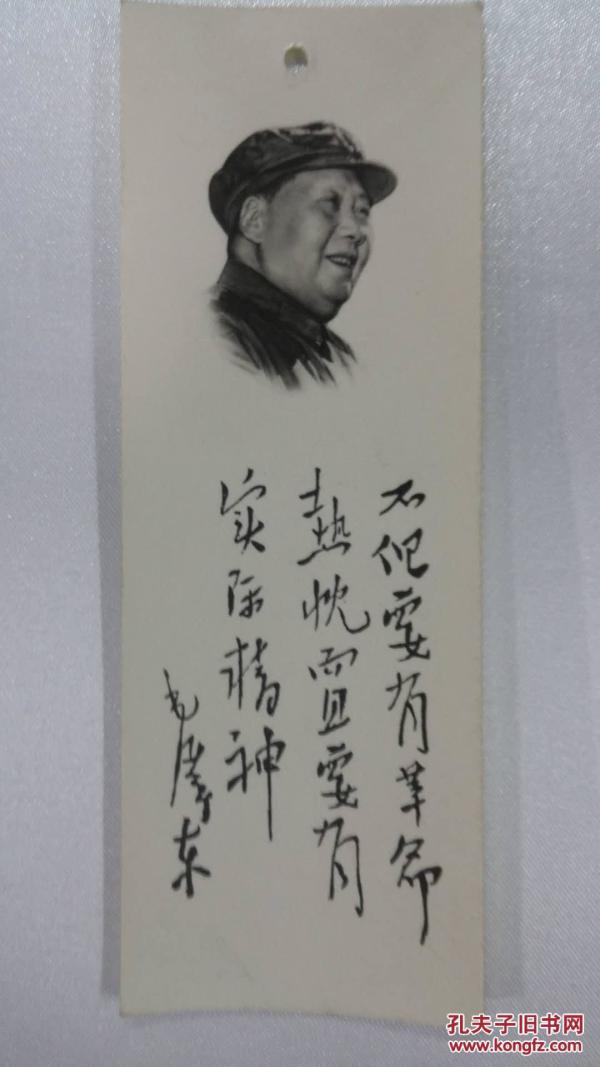 不但要有革命
热忱而且要有
实际精神
毛泽东
孔夫子旧书网
www.kongfz.com